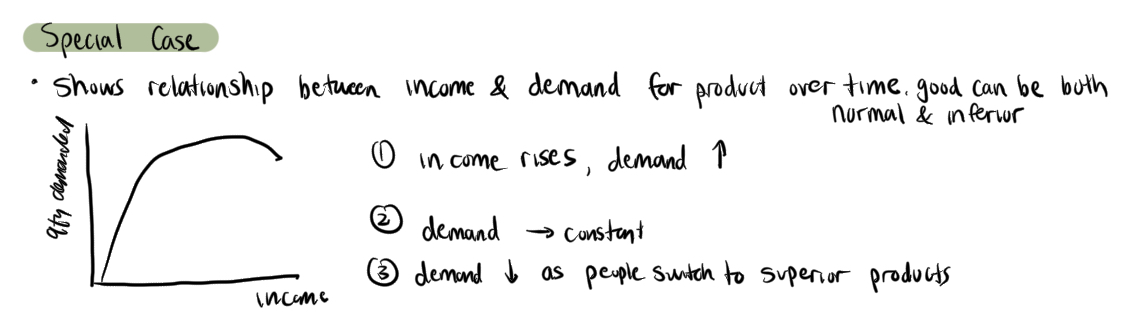 Special Case
• Shows relationship between income & demand for product over time. good can be both
normal & inferior
qty demanded
① income rises, demand ↑
② demand → constant
③ demand ↓ as people switch to superior products
income